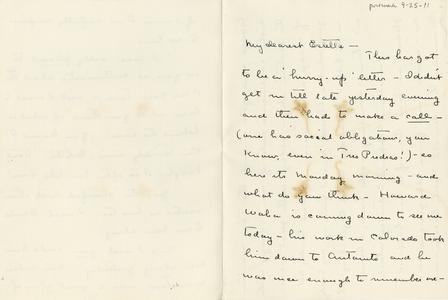 postmark 9-25-11
My dearest Estelle —
This has got
to be a 'hurry-up' letter — I didn't
get in till late yesterday evening
and then had to make a call —
(one has social obligations, you
know, even in Tres Piedras!) — so
here its Monday morning — and
what do you think — Howard
is coming down to see me
today — his work in Colorado took
him down to Antonito and he
was nice enough to remember me —